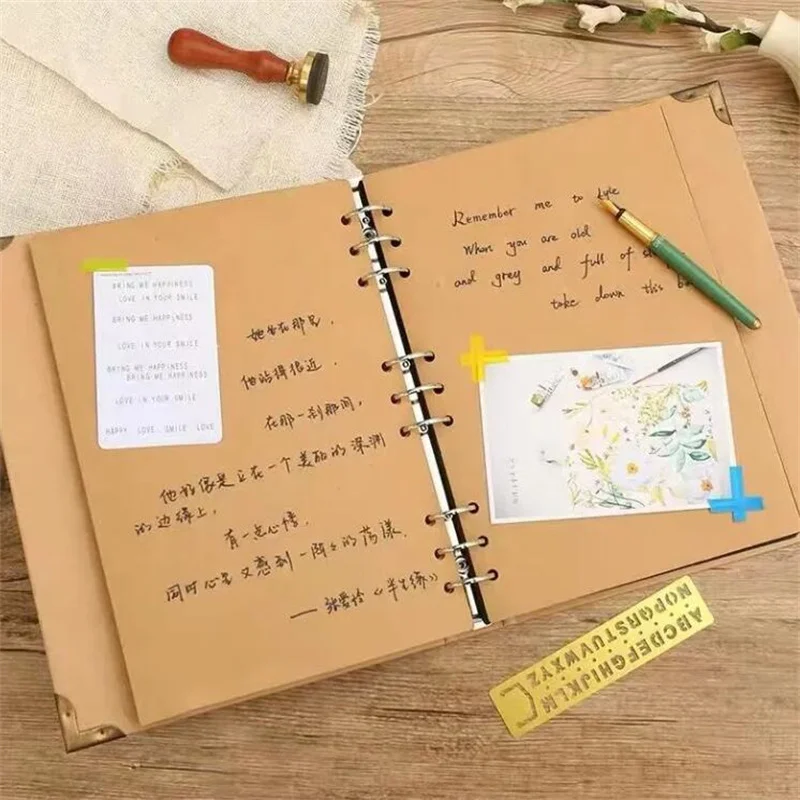 BRING ME HAPPINESS
LOVE IN YOUR SMILE
BRING ME HAPPINESS
LOVE IN YOUR SMILE
BRING ME HAPPINESS
BRING ME HAPPINESS
LOVE IN YOUR SMILE
HAPPY LOVE SMILE LOVE
她坐在那里，
他站得很近．
在那一刹那间，
他好像是立在一个美丽的深渊
的边缘上，
有一点心悸．
同时心里又感到一阵阵的荡漾．
—— 张爱玲《半生缘》
Remember me to
When you are old
and grey and full of
take down this
ABCDEFGHIJKLM
NOPQRSTUVWXYZ